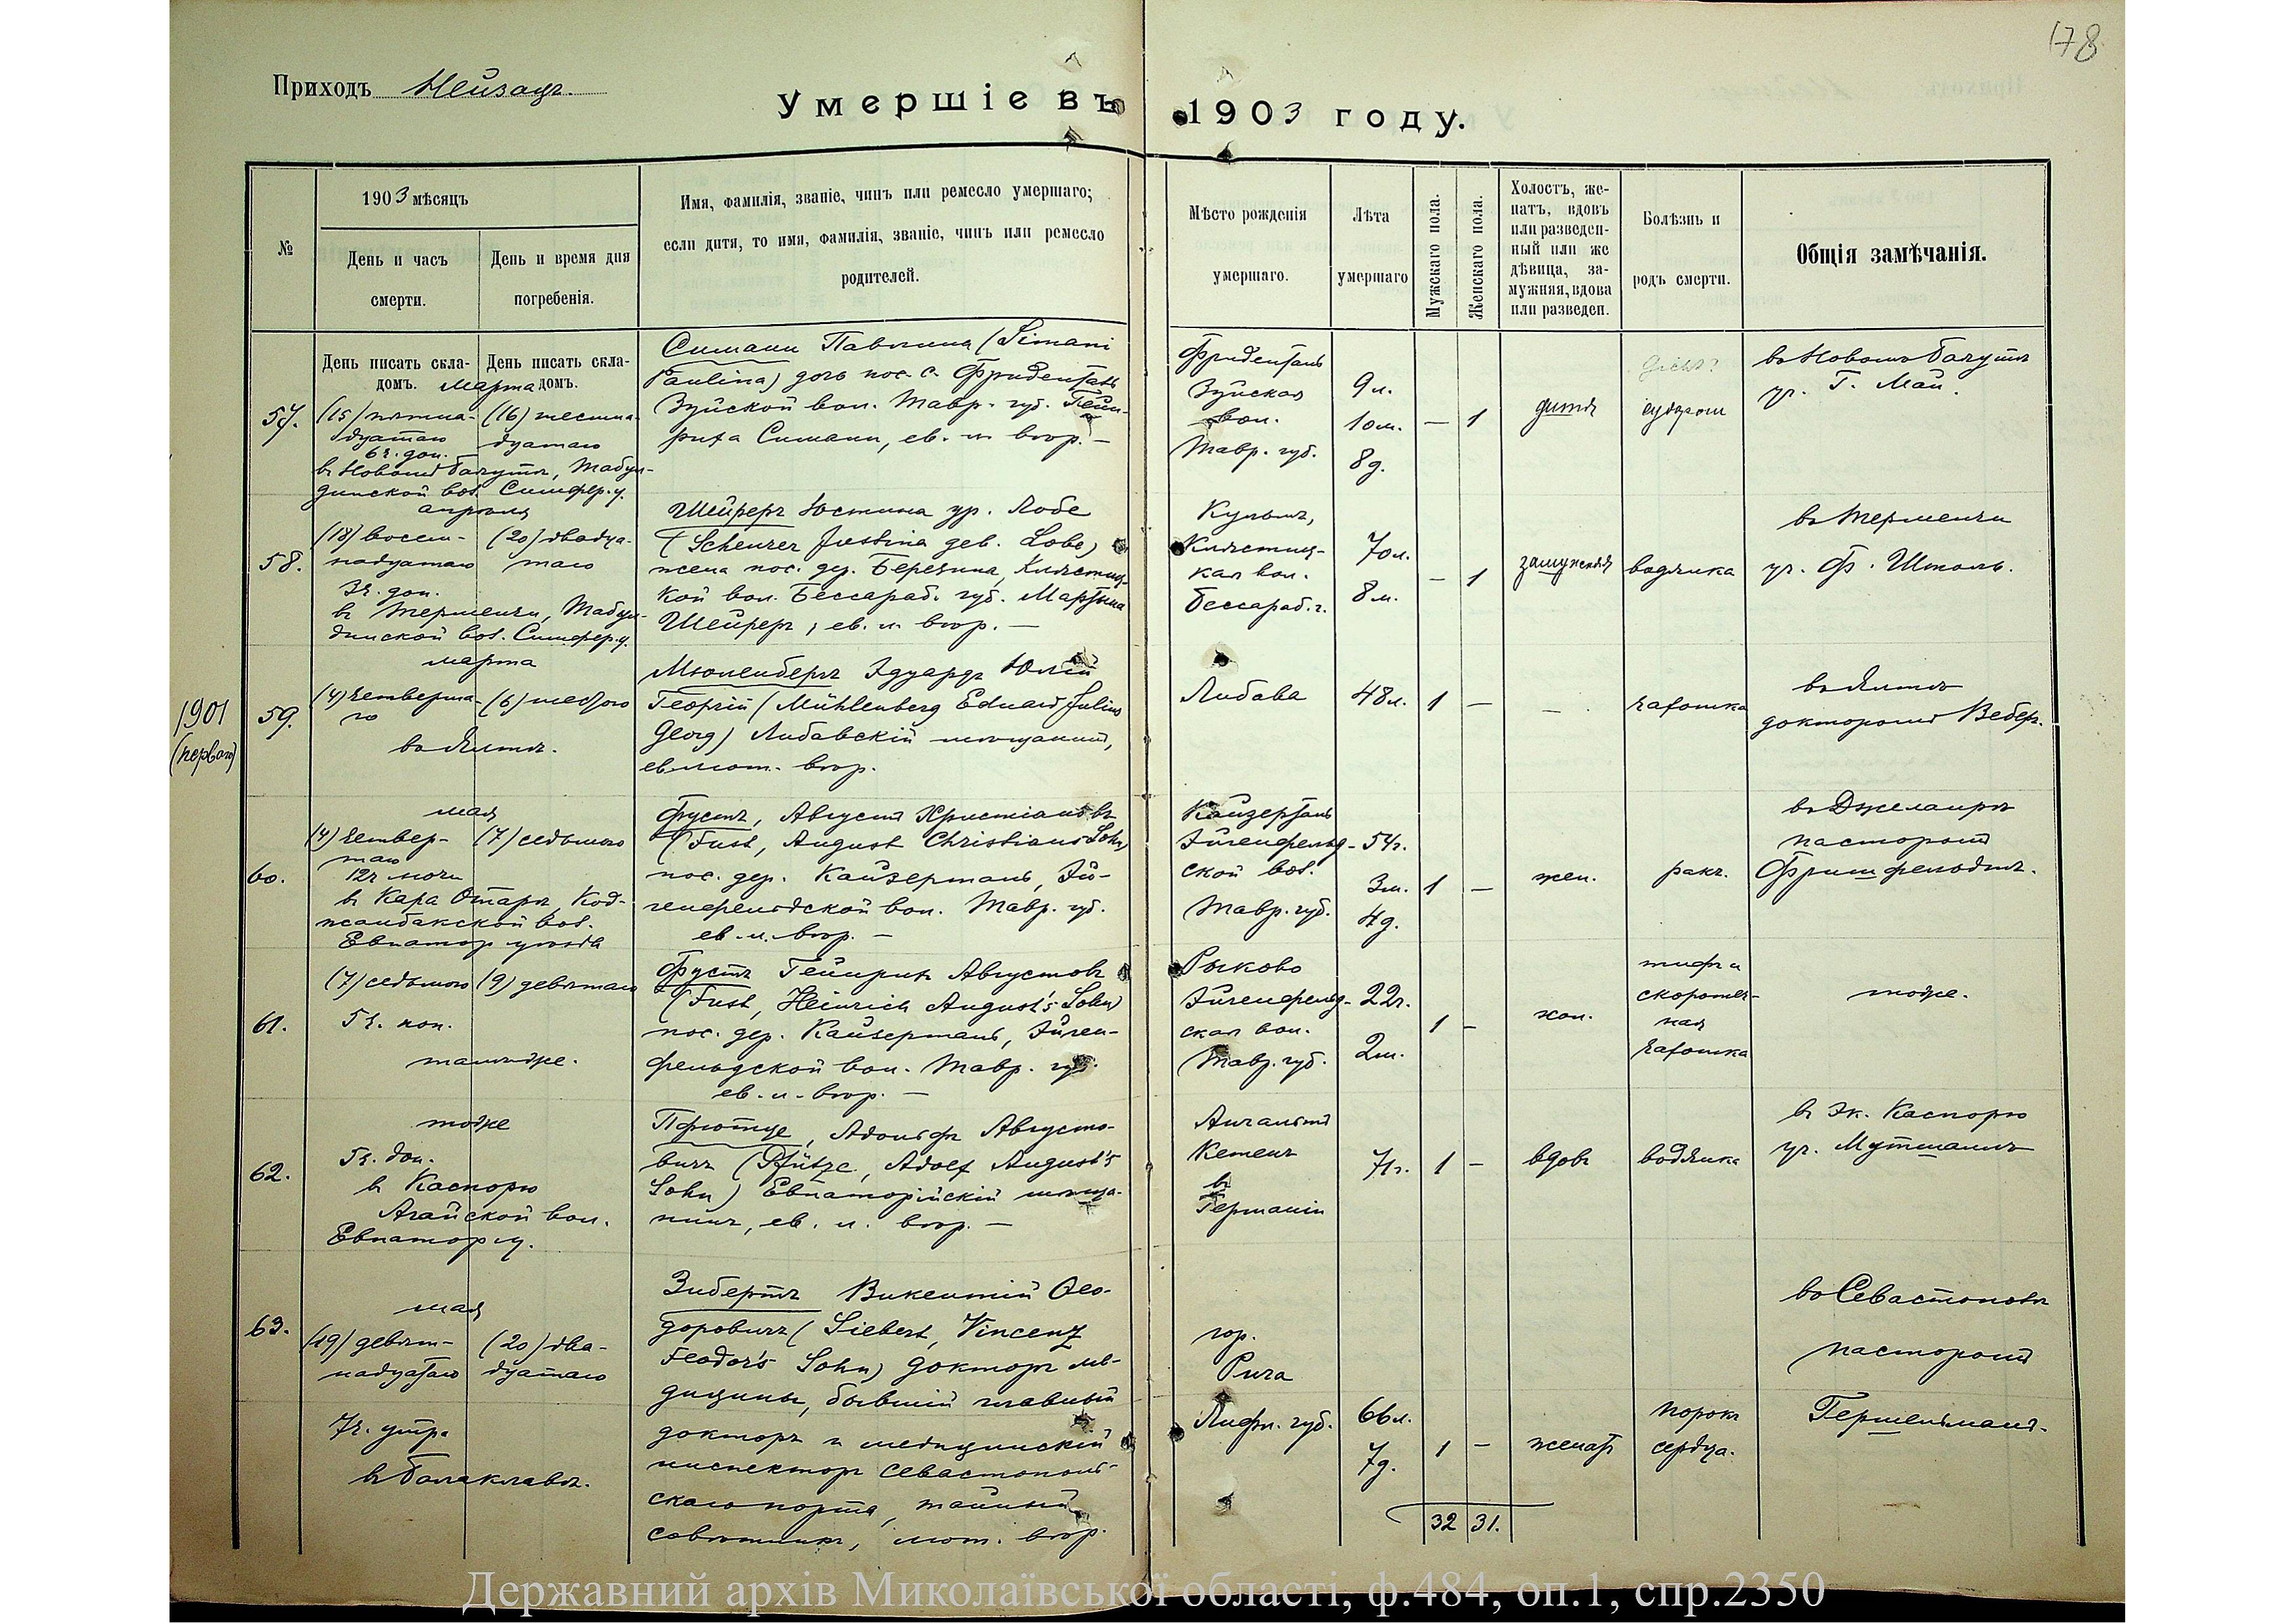 178
Приходъ Нейзацъ.
Умершіе въ 1903 году.
№
1903 мѣсяцъ
День и часъ
смерти.
День и время дня
погребенія.
Имя, фамилія, званіе, чинъ или ремесло умершаго;
если дитя, то имя, фамилія, званіе, чинъ или ремесло
родителей.
Мѣсто рожденія
умершаго.
Лѣта
умершаго
Мужскаго пола.
Женскаго пола.
Холостъ, же-
натъ, вдовъ
или разведен-
ный или же
дѣвица, за-
мужняя, вдова
или разведен.
Болѣзнь и
родъ смерти.
Общія замѣчанія.
День писать скла-
домъ.
День писать скла-
домъ.
марта
57.
(15) пятна-
дцатаго
6 ч. поп.
(16) шестна-
дцатаго
въ Новомъ Бачутѣ, Табул-
динской вол. Симфер. у.
Симани Павлина (Simani
Paulina) дочь пос. с. Фриденталь
Зуйской вол. Тавр. губ. Гейн-
риха Симани, ев. л. вѣр. —
Фриденталь
Зуйская
вол.
Тавр. губ.
9 л.
10 м.
8 д.
— 1
дитя
судороги
въ Новомъ Бачутѣ
уч. Г. Май.
апрѣля
58.
(18) восем-
надцатаго
3 ч. поп.
(20) двадца-
таго
въ Терменчи, Табул-
динской вол. Симфер. у.
Шейреръ Юстина ур. Лобе
(Scheurer Justina geb. Lobe)
жена пос. дер. Березина, Клястиц-
кой вол. Бессараб. губ. Мартына
Шейреръ, ев. л. вѣр. —
Кульмъ,
Клястиц-
кая вол.
Бессараб. г.
70 л.
8 м.
— 1
замужняя
водянка
въ Терменчи
уч. Ф. Штоль.
марта
1901
(перваго)
59.
(4) четверта
го
(6) шестого
въ Ялтѣ.
Мюленбергъ Эдуардъ Юлій
Георгій (Mühlenberg Eduard Julius
Georg) Либавскій мѣщанинъ,
ев. лют. вѣр.
Либава
48 л.
1 —
—
чахотка
въ Ялтѣ
докторомъ Веберъ.
мая
60.
(4) четвер-
таго
12 ч. ночи
(7) седьмого
въ Кара Отаръ, Код-
жамбакской вол.
Евпатор. уѣзда
Фустъ, Августъ Христіановъ
(Fust, August Christians Sohn)
пос. дер. Кайзерталь, Эй-
генфельдской вол. Тавр. губ.
ев. л. вѣр. —
Кайзерталь
Эйгенфельд-
ской вол.
Тавр. губ.
54 г.
3 м.
4 д.
1 —
жен.
ракъ.
въ Джелаирѣ
пасторомъ
Фришфельдтъ.
61.
(7) седьмого
5 ч. поп.
(9) девятаго
тамъ же.
Фустъ Гейнрихъ Августовъ
(Fust, Heinrich August's Sohn)
пос. дер. Кайзерталь, Эйген-
фельдской вол. Тавр. губ.
ев. л. вѣр. —
Рыково
Эйгенфельд-
ская вол.
Тавр. губ.
22 г.
2 м.
1 —
хол.
тифъ и
скоротеч-
ная
чахотка
тоже.
62.
тоже
5 ч. поп.
въ Каспорю
Агайской вол.
Евпатор. у.
Пфютце, Адольфъ Августо-
вичъ (Pfütze, Adolf August's
Sohn) Евпаторійскій мѣща-
нинъ, ев. л. вѣр. —
Ангальтъ
Кетенъ
въ
Германіи
71 г.
1 —
вдовъ
водянка
въ эк. Каспорю
уч. Мутшалъ
мая
63.
(19) девят-
надцатаго
7 ч. утра
(20) два-
дцатаго
въ Балаклавѣ.
Зибертъ Викентій Ѳео-
доровичъ (Siebert, Vincenz
Feodor's Sohn) докторъ ме-
дицины, бывшій главный
докторъ и медицинскій
инспекторъ Севастополь-
скаго порта, тайный
совѣтникъ, лют. вѣр.
гор.
Рига
Лифл. губ.
66 л.
7 д.
1 —
женатъ
порокъ
сердца.
въ Севастополѣ
пасторомъ
Гершельманъ.
32 31.
Державний архів Миколаївської області, ф.484, оп.1, спр.2350